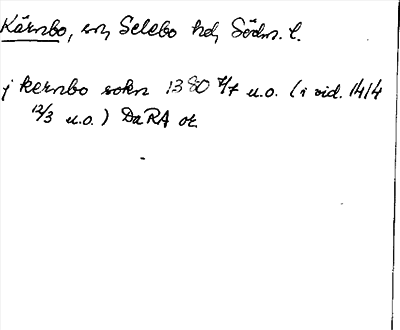 Kärnbo, sn, Selebo hd, Södm. l.
j kernbo sokn 1380 4/7 u.o. (i vid. 1414
12/3 u.o.) DaRA or.